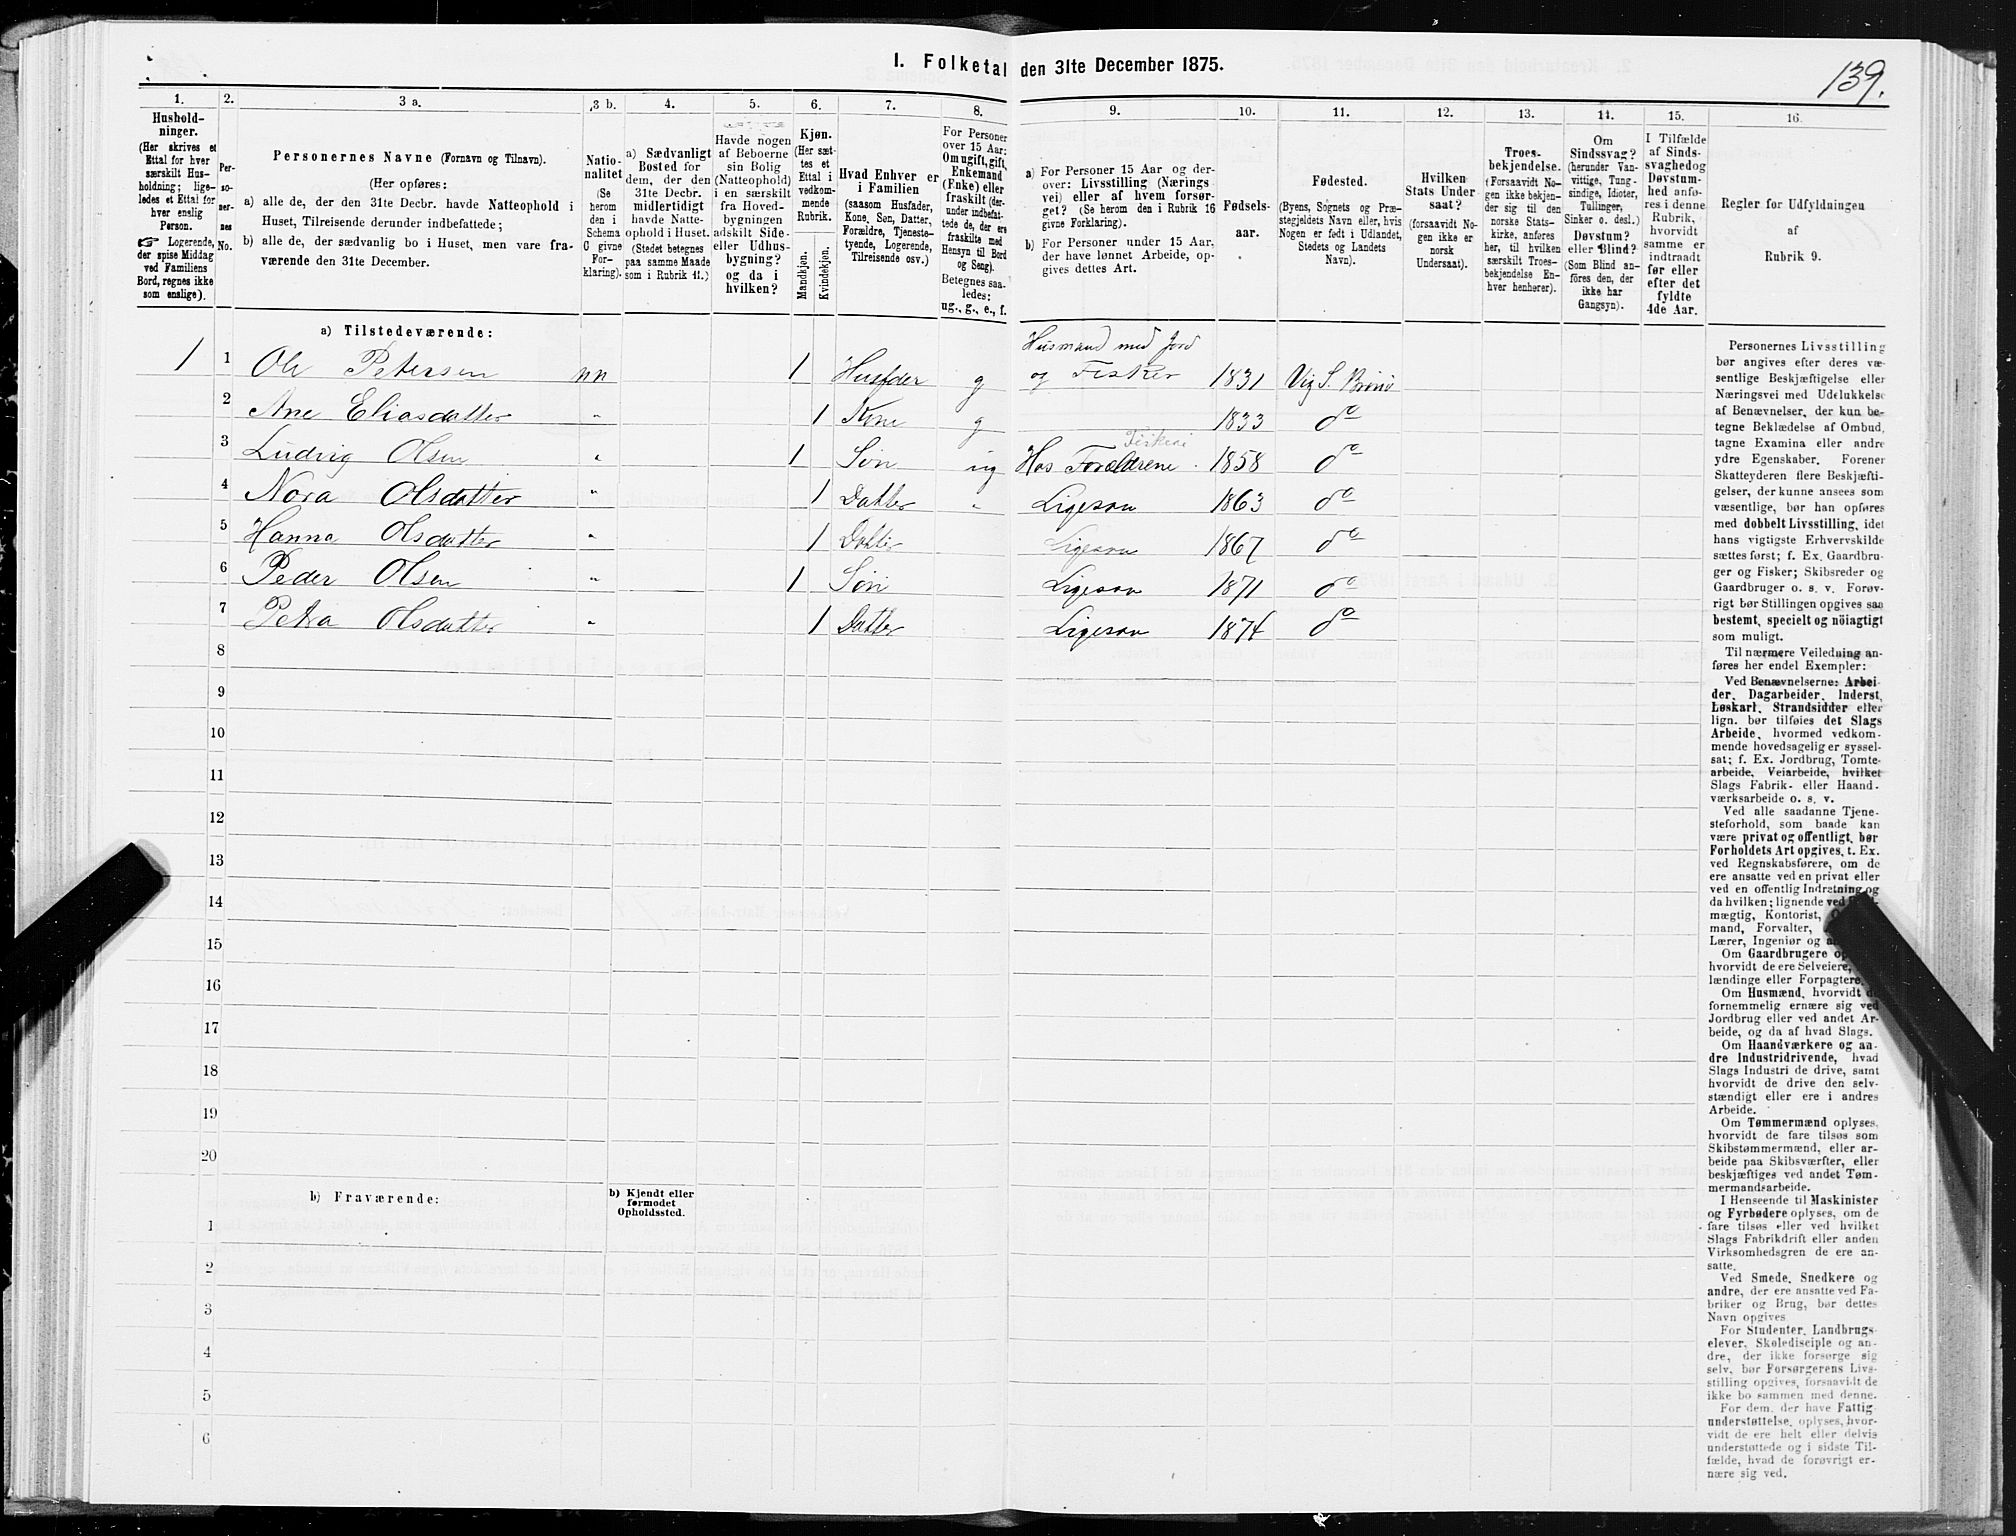 1. Folketal den 31te December 1875.
139.
1.
2.
3 a.
3 b.
4.
5.
6.
7.
8.
9.
10.
11.
12.
13.
14.
15.
16.
Hushold-
ninger.
(Her skrives et
Ettal for hver
særskilt Hus-
holdning; lige-
ledes et Ettal for
hver enslig
Person.
☞ Logerende,
der spise Middag
ved Familiens
Bord, regnes ikke
som enslige).
Per-
so-
ner-
nes
No.
Personernes Navne (Fornavn og Tilnavn).
(Her opføres:
a) alle de, der den 31te Decbr. havde Natteophold i
Huset, Tilreisende derunder indbefattede;
b) alle de, der sædvanlig bo i Huset, men vare fra-
værende den 31te December.
Natio-
nalitet
(Se
herom
den i
Schema
C givne
For-
klaring).
a) Sædvanligt
Bosted for
dem, der den
31te Decbr.
midlertidigt
havde Natte-
ophold i Huset.
(Stedet betegnes
paa samme Maade
som i Rubrik 11.)
Havde nogen
af Beboerne
sin Bolig
(Natteophold)
i en særskilt
fra Hoved-
bygningen
adskilt Side-
eller Udhus-
bygning?
og da i
hvilken?
Kjøn.
(Her sæt-
tes et
Ettal i
vedkom-
mende
Rubrik.
Mandkjøn.
Kvindekjøn.
Hvad Enhver er
i Familien
(saasom Husfader,
Kone, Søn, Datter,
Forældre, Tjeneste-
tyende, Logerende,
Tilreisende osv.)
For Personer
over 15 Aar:
Om ugift, gift,
Enkemand
(Enke) eller
fraskilt (der-
under indbefat-
tede de, der ere
fraskilte med
Hensyn til Bord
og Seng).
Betegnes saa-
ledes:
ug., g., e., f.
a) For Personer 15 Aar og der-
over: Livsstilling (Nærings
vei) eller af hvem forsør-
get? (Se herom den i Rubrik 16
givne Forklaring).
b) For Personer under 15 Aar,
der have lønnet Arbeide, op-
gives dettes Art.
Fødsels-
aar.
Fødested.
(Byens, Sognets og Præ-
stegjeldets Navn eller, hvis
Nogen er født i Udlandet,
Stedets og Landets
Navn).
Hvilken
Stats Under
saat?
(forsaavidt No-
gen ikke er
norsk
Undersaat).
Troes-
bekjendelse.
(Forsaavidt No-
gen ikke bekjen-
der sig til den
norske Stats-
kirke, anføres
her, til hvilken
særskilt Troes-
bekjendelse En-
hver henhører).
Om
Sindssvag?
(herunder Van-
vittige, Tung-
sindige, Idioter,
Tullinger,
Sinker o. desl.)
Døvstum?
eller Blind?
(Som Blind an-
føres den, der
ikke har
Gangsyn).
I Tilfælde
af Sinds-
svaghed og
Døvstum-
hed anfø-
res i denne
Rubrik,
hvorvidt
samme er
indtraadt
før eller
efter det
fyldte
4de Aar.
Regler for Udfyldningen
af
Rubrik 9.
a) Tilstedeværende:
1 1 Ole Petersen nn 1 Husfder g Husmand med Jord
og Fisker 1831 Vig S. Brønø
2 Ane Eliasdatter " 1 Kone g 1833 do
3 Ludvig Olsen " 1 Søn ug Hos Forældrene. Fiskeri 1858 do
4 Nora Olsdatter " 1 Datter " Ligesaa 1863 do
5 Hanna Olsdatter " 1 Datter Ligesaa 1867 do
6 Peder Olsen " 1 Søn Ligesaa 1871 do
7 Petra Olsdatter " 1 Datter Ligesaa 1874 do
8
9
10
11
12
13
14
15
16
17
18
19
20
b) Fraværende:
b) Kjendt eller
formodet
Opholdssted.
1
2
3
4
5
6
Personernes Livsstilling
bør angives efter deres væ-
sentlige Beskjæftigelse eller
Næringsvei med Udelukkelse
af Benævnelser, der kun be-
tegne Beklædelse af Ombud,
tagne Examina eller andre
ydre Egenskaber. Forener
Skatteyderen flere Beskjæfti-
gelser, der kunne ansees som
væsentlige, bør han opføres
med dobbelt Livsstilling, idet
hans vigtigste Erhvervskilde
sættes først; f. Ex. Gaardbru-
ger og Fisker; Skibsreder og
Gaardbruger o. s. v. Forøv-
rigt bør Stillingen opgives saa
bestemt, specielt og nöiagtigt
som muligt.
Til nærmere Veiledning an-
føres her endel Exempler:
Ved Benævnelserne: Arbei-
der, Dagarbeider, Inderst,
Løskarl, Strandsidder eller
lign. bør tilføies det Slags
Arbeide, hvormed vedkom-
mende hovedsagelig er syssel-
sat; f. Ex. Jordbrug, Tomte-
arbeide, Veiarbeide, hvilket
Slags Fabrik- eller Haand-
værksarbeide o. s. v.
Ved alle saadanne Tjene-
steforhold, som baade kan
være privat og offentligt, bør
Forholdets Art opgives, t. Ex.
ved Regnskabsførere, om de
ere ansatte ved en privat eller
ved en offentlig Indretning og
da hvilken; lignende ved
mægtig, Kontorist,
mand, Forvalter,
Lærer, Ingeniør og
Om Gaardbrugere
hvorvidt de ere Selveiere,
lændinge eller Forpagtere.
Om Husmænd, hvorvidt de
fornemmelig ernære sig ved
Jordbrug eller ved andet Ar-
beide, og da af hvad Slags.
Om Haandværkere og an-
dre Industridrivende, hvad
Slags Industri de drive, samt
hvorvidt de drive den selv-
stændigt eller ere i andres
Arbeide.
Om Tømmermænd oplyses,
hvorvidt de fare tilsøs som
Skibstømmermænd, eller ar-
beide paa Skibsværfter, eller
beskjæftiges ved andet Tøm-
mermandsarbeide.
I Henseende til Maskinister
og Fyrbødere oplyses, om de
fare tilsøs eller ved hvilket
Slags Fabrikdrift eller anden
Virksomhedsgren de ere an-
satte.
Ved Smede, Snedkere og
andre, der ere ansatte ved Fa-
briker og Brug, bør dettes
Navn opgives
For Studenter, Landbrugs-
elever, Skoledisciple og an-
dre, der ikke forsørge sig
selv, bør Forsørgerens Livs-
stilling opgives, forsaavidt de
ikke bo sammen med denne.
For dem, der have Fattig-
understøttelse, oplyses, hvor-
vidt de ere helt eller delvis
understøttede og i sidste Til-
fælde, hvad de forøvrigt er-
nære sig ved.